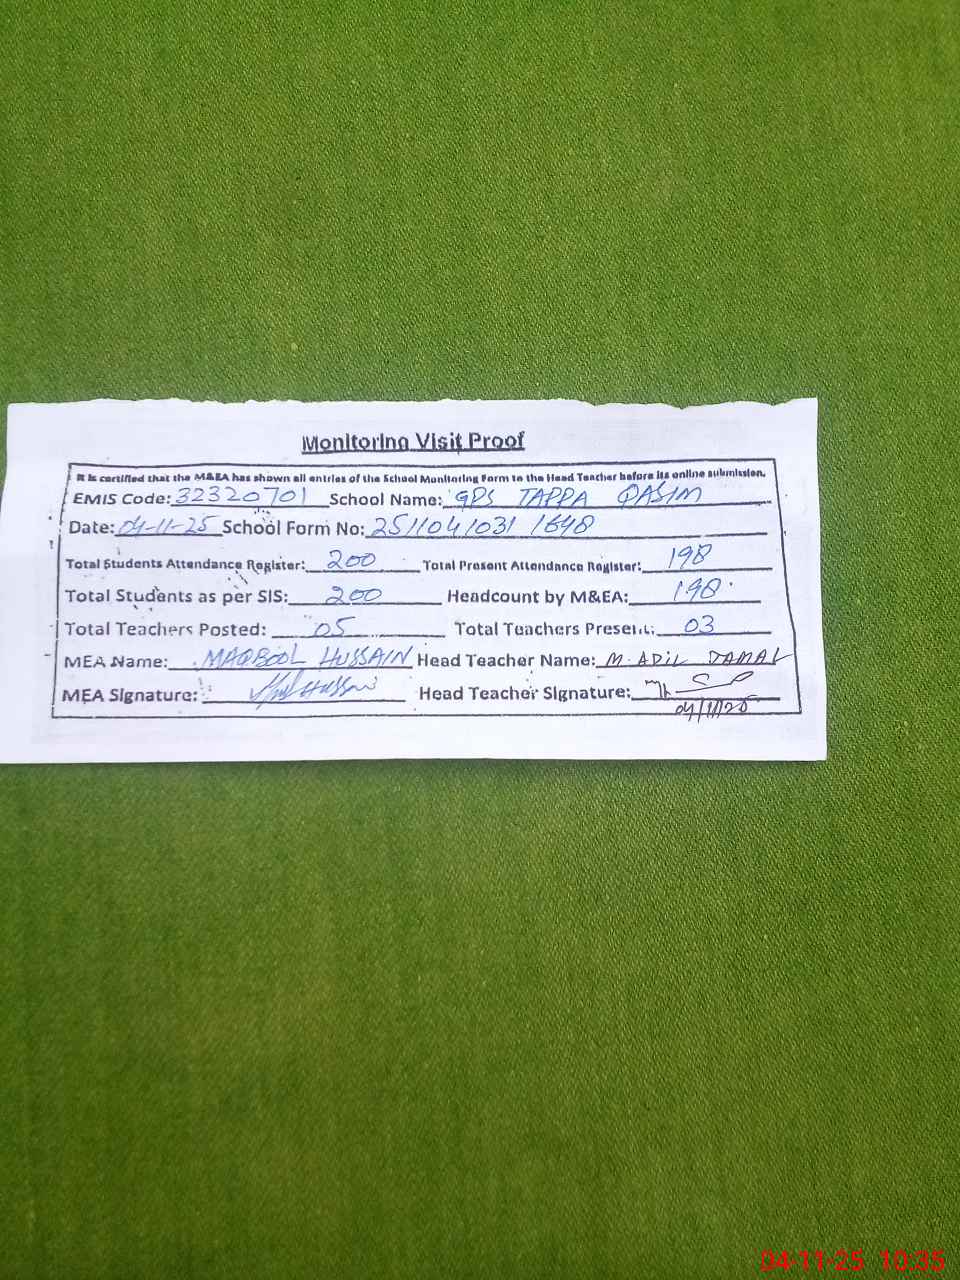 Monitoring Visit Proof
It is certified that the M&EA has shown all entries of the School Monitoring Form to the Head Teacher before its online submission.
EMIS Code: 32320701 School Name: GPS TAPPA QASIM
Date: 04-11-25 School Form No: 2511041031 1648
Total Students Attendance Register: 200 Total Present Attendance Register: 198
Total Students as per SIS: 200 Headcount by M&EA: 198
Total Teachers Posted: 05 Total Teachers Present: 03
MEA Name: MAQBOOL HUSSAIN Head Teacher Name: M. ADIL JAMAL
MEA Signature: Hussain Head Teacher Signature:
04/11/25
04-11-25 10:35